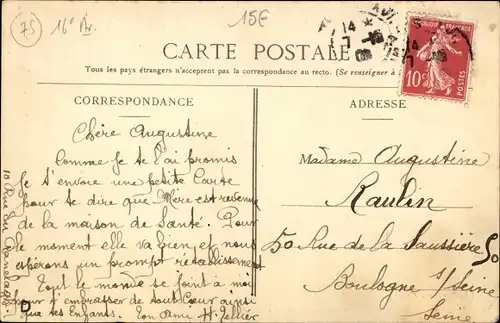 75
16e Ar.
15E
CARTE POSTALE
Tous les pays étrangers n'acceptent pas la correspondance au recto. (Se renseigner à
CORRESPONDANCE
ADRESSE
10c
POSTES
Chère Augustine
Comme je te l'ai promis
Je t'envoie une petite Carte
pour te dire que Mère est revenue
de la maison de Santé. Pour
le moment elle va bien et nous
espérons un prompt rétablissement
Tout le monde se joint à moi
pour t'embrasser de tout Cœur ainsi
que tes Enfants. Ton Ami H. Tellier
10 Rue du Ranelagh
Madame Augustine
Raulin
50 Rue de la Saussière 50
Boulogne s/Seine
Seine